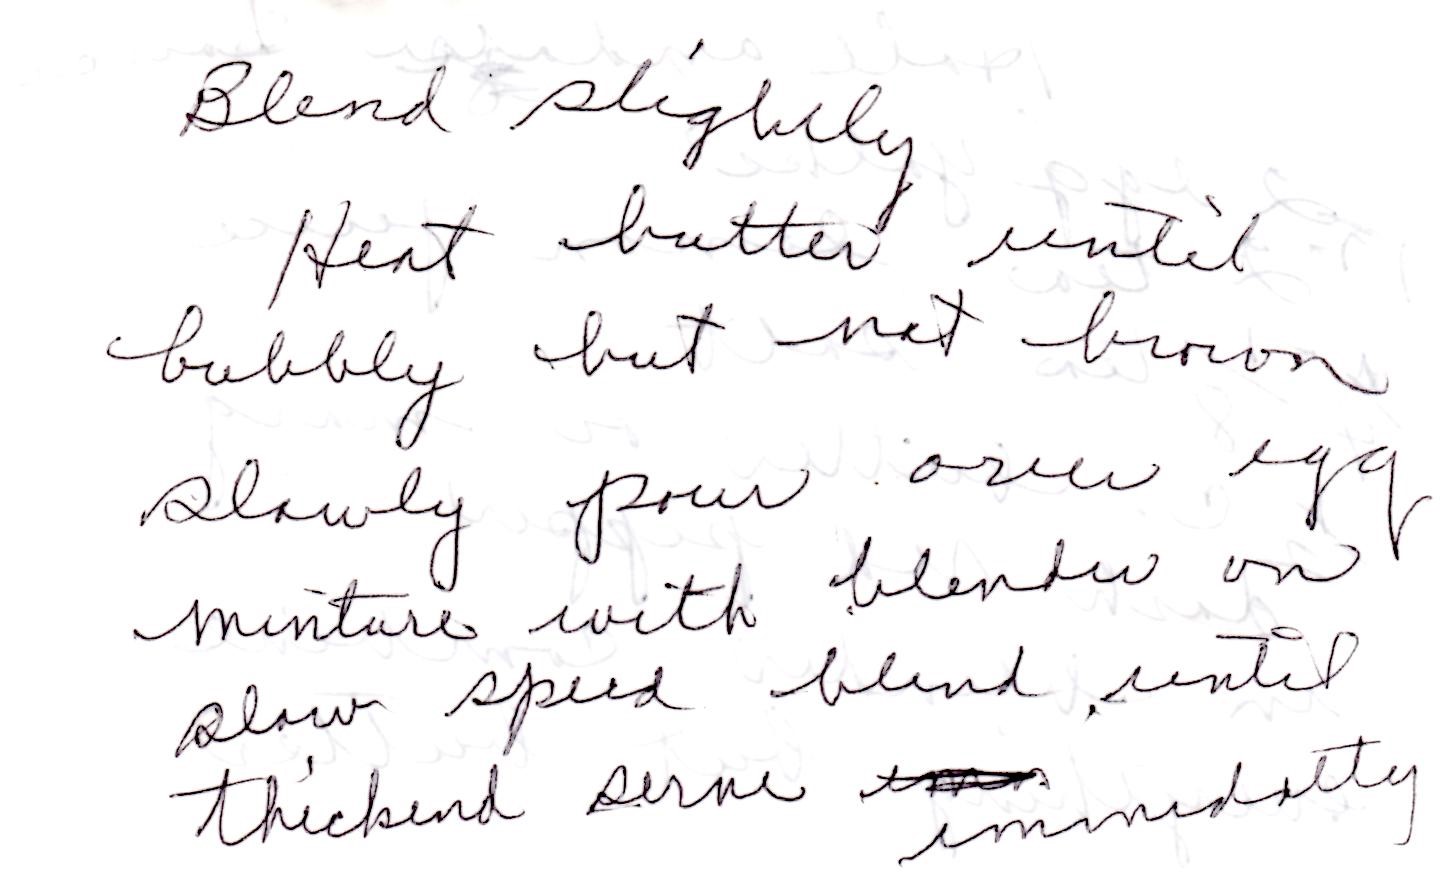 Blend slightly
Heat butter until
bubbly but not brown
slowly pour over egg
mixture with blender on
slow speed blend until
thickend serve
immedatly